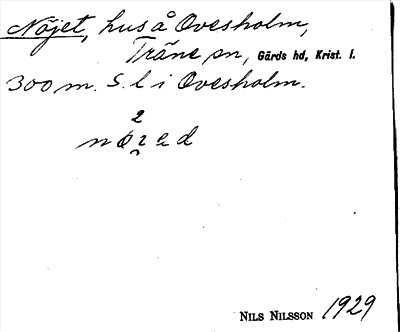 Nöjet, hus å Ovesholm,
Träne sn, Gärds hd, Krist. l.
300 m. S. l i Ovesholm.
2
Nils Nilsson 1929